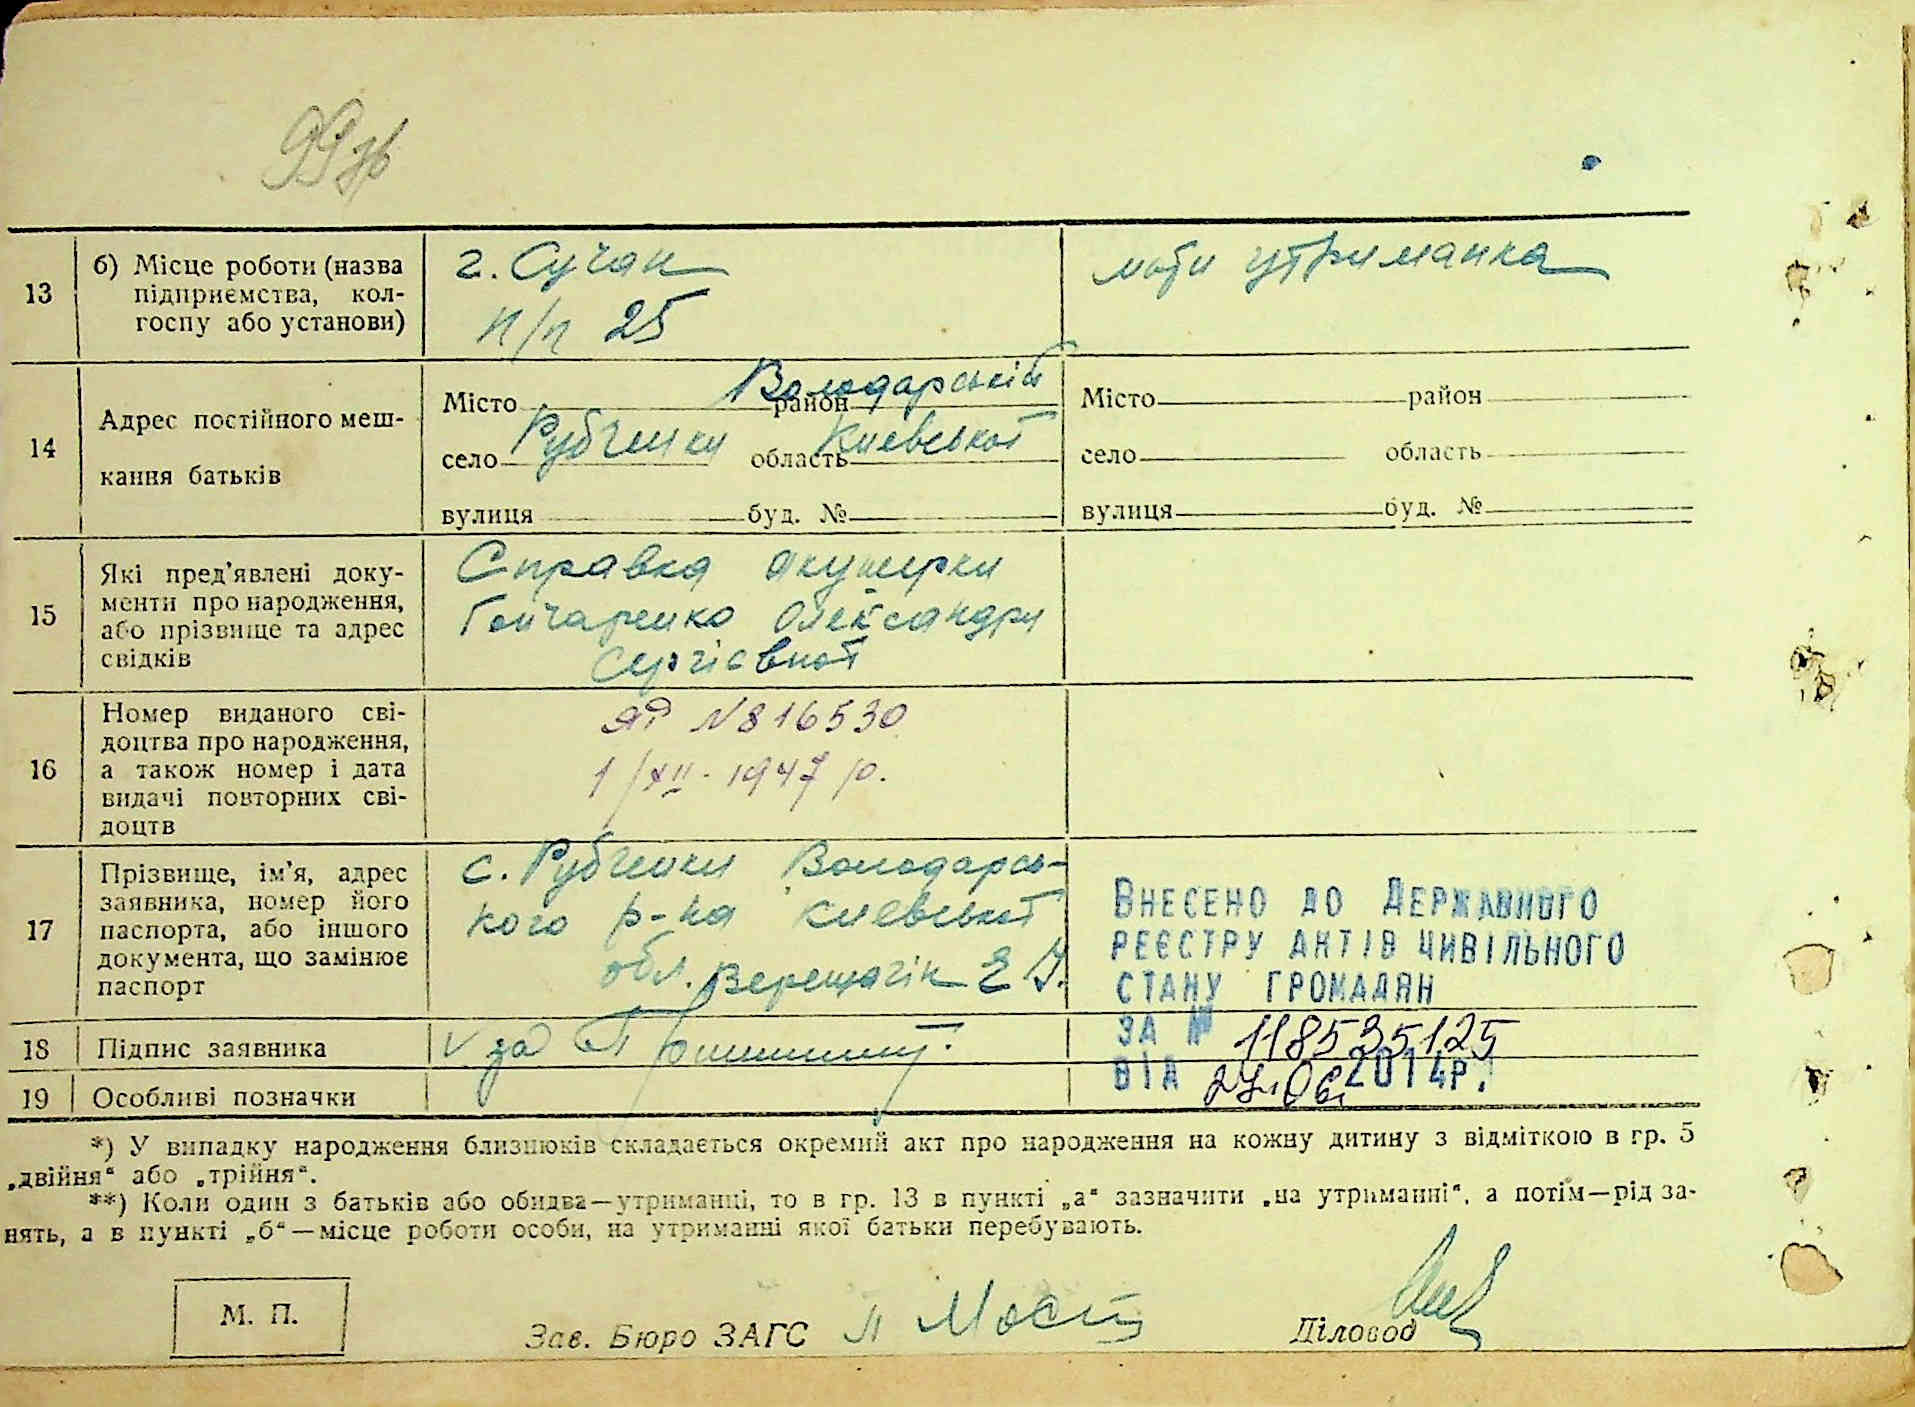 99зв
13
б) Місце роботи (назва
підприємства, кол-
госпу або установи)
г. Сучан
п/п 25
мати утриманка
14
Адрес постійного меш-
кання батьків
Місто район Володарській
село Рубченки область Киевської
вулиця буд. №
Місто район
село область
вулиця буд. №
15
Які пред'явлені доку-
менти про народження,
або прізвище та адрес
свідків
Справка акушерки
Гончаренко Олександри
Сергієвної
16
Номер виданого сві-
доцтва про народження,
а також номер і дата
видачі повторних сві-
доцтв
N 816530
1/XII - 1947 р.
17
Прізвище, ім'я, адрес
заявника, номер його
паспорта, або іншого
документа, що замінює
паспорт
с. Рубченки Володарсь-
кого р-на Киевської
обл. Верещагін Е І.
Внесено до Державного
реєстру актів цивільного
стану громадян
за № 118535125
від 27.06. 2014р.
18
Підпис заявника
V за
19
Особливі позначки
*) У випадку народження близнюків складається окремий акт про народження на кожну дитину з відміткою в гр. 5
„двійня“ або „трійня“.
**) Коли один з батьків або обидва—утриманці, то в гр. 13 в пункті „а“ зазначити „на утриманні“, а потім—рід за-
нять, а в пункті „б“—місце роботи особи, на утриманні якої батьки перебувають.
М. П.
Зав. Бюро ЗАГС
Діловод